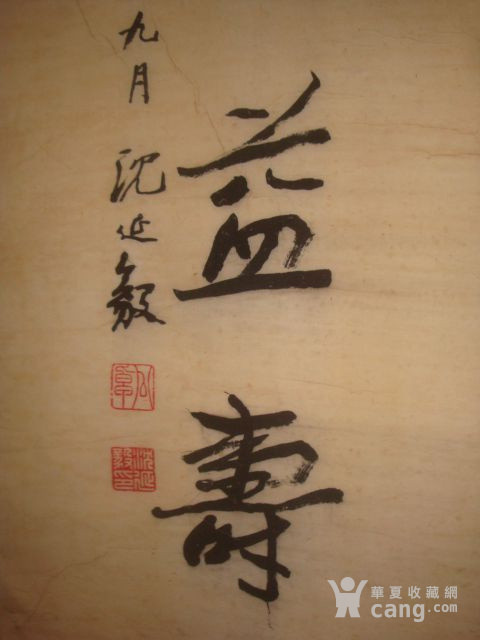 益壽
九月 沈延毅
沈延毅印
華夏收藏網
cang.com